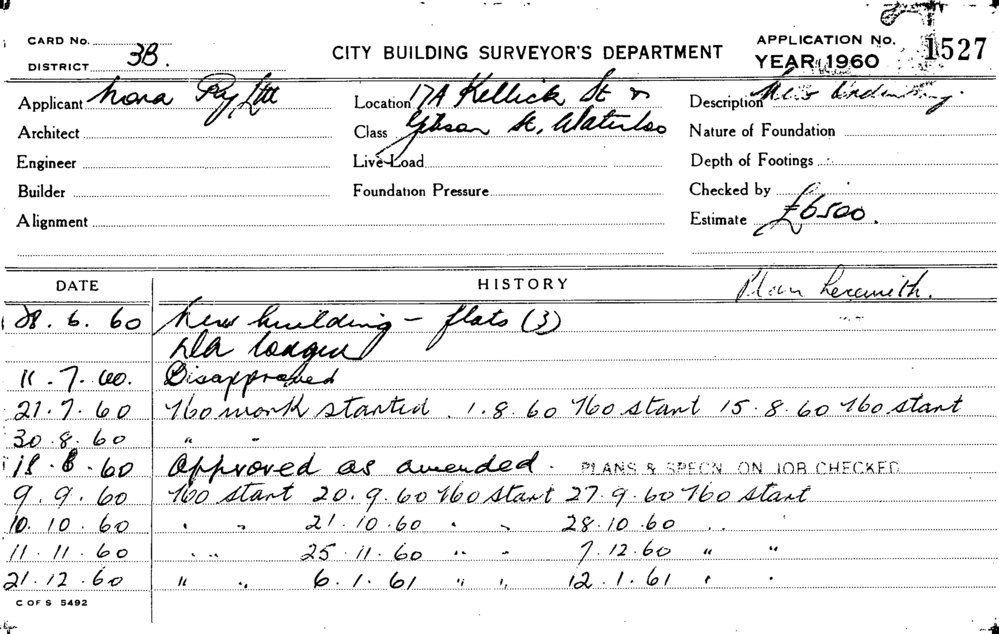 CARD No.
DISTRICT 3B.
CITY BUILDING SURVEYOR'S DEPARTMENT
APPLICATION No. 1527
YEAR 1960
Applicant Nora Pty Ltd
Location 17A Kellick St &
Description New
Architect
Class Gibson St, Waterloo
Nature of Foundation
Engineer
Live-Load
Depth of Footings
Builder
Foundation Pressure
Checked by
Alignment
Estimate £6500.
DATE HISTORY Plan herewith.
28.6.60 New building - flats (3)
DA lodged
11.7.60. Disapproved
21.7.60 No work started. 1.8.60 No start 15.8.60 No start
30.8.60 " "
18.8.60 Approved as amended. PLANS & SPECN. ON JOB CHECKED
9.9.60 No start 20.9.60 No start 27.9.60 No start
10.10.60 " " 21.10.60 " " 28.10.60 " "
11.11.60 " " 25.11.60 " " 7.12.60 " "
21.12.60 " " 6.1.61 " " 12.1.61 " "
C OF S 5492